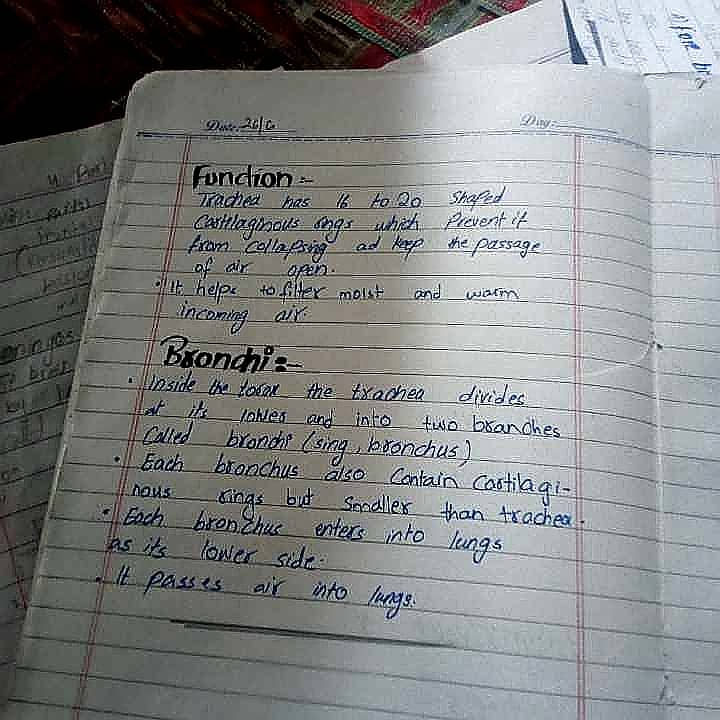 Date: 26/6 Day:
Function :-
Trachea has 16 to 20 Shaped
Cartilaginous rings which Prevent it
from collapsing ad keep the passage
of air open.
• It helps to filter moist and warm
incoming air.
Bronchi :-
• Inside the the trachea divides
at its lower end into two branches
Called bronchi (sing, bronchus)
• Each bronchus also Contain Cartilagi-
nous rings but Smaller than trachea.
• Each bronchus enters into lungs
as its lower side.
• It passes air into lungs.